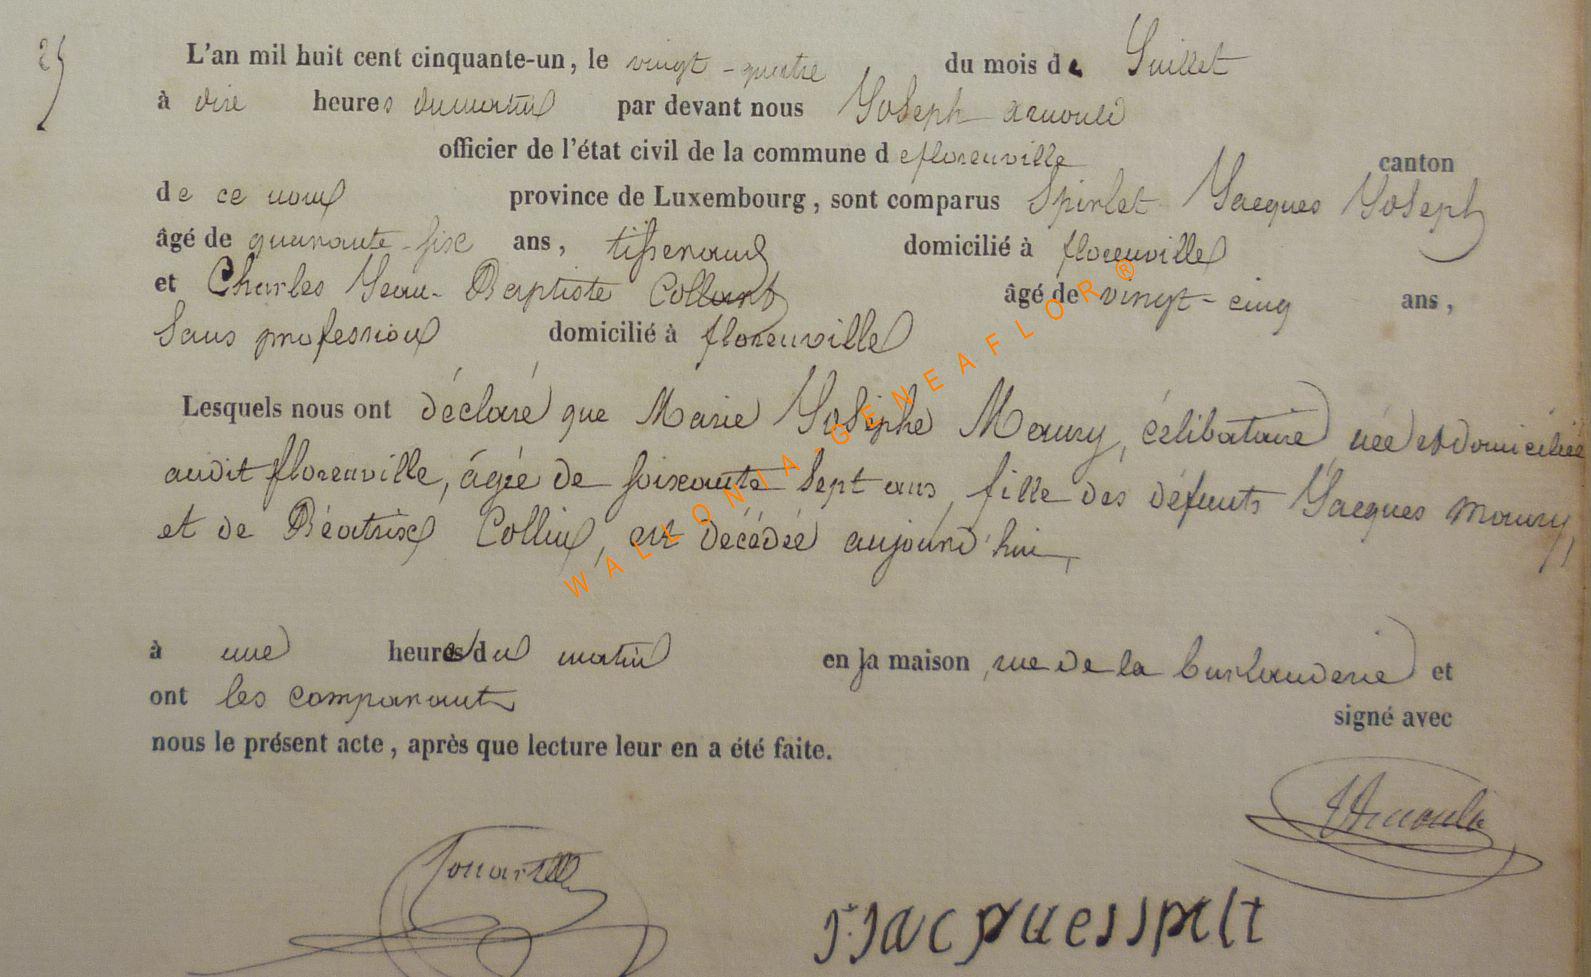 25
L'an mil huit cent cinquante-un, le vingt-quatre du mois de Juillet
à dix heures du matin par devant nous Joseph Arnould
officier de l'état civil de la commune de florenville canton
de ce nom province de Luxembourg, sont comparus Spirlet Jacques Joseph
âgé de quarante-six ans, tisserand domicilié à florenville
et Charles Jean-Baptiste Collard âgé de vingt-cinq ans,
sans profession domicilié à florenville
Lesquels nous ont déclaré que Marie Josèphe Maury, célibataire, née et domiciliée
audit florenville, âgée de soixante sept ans, fille des défunts Jacques Maury,
et de Béatrix Collin, est décédée aujourd'hui,
à une heure du matin en sa maison, rue de la et
ont les comparants signé avec
nous le présent acte, après que lecture leur en a été faite.
JArnould
WALLONIA-GENEAFLOR®